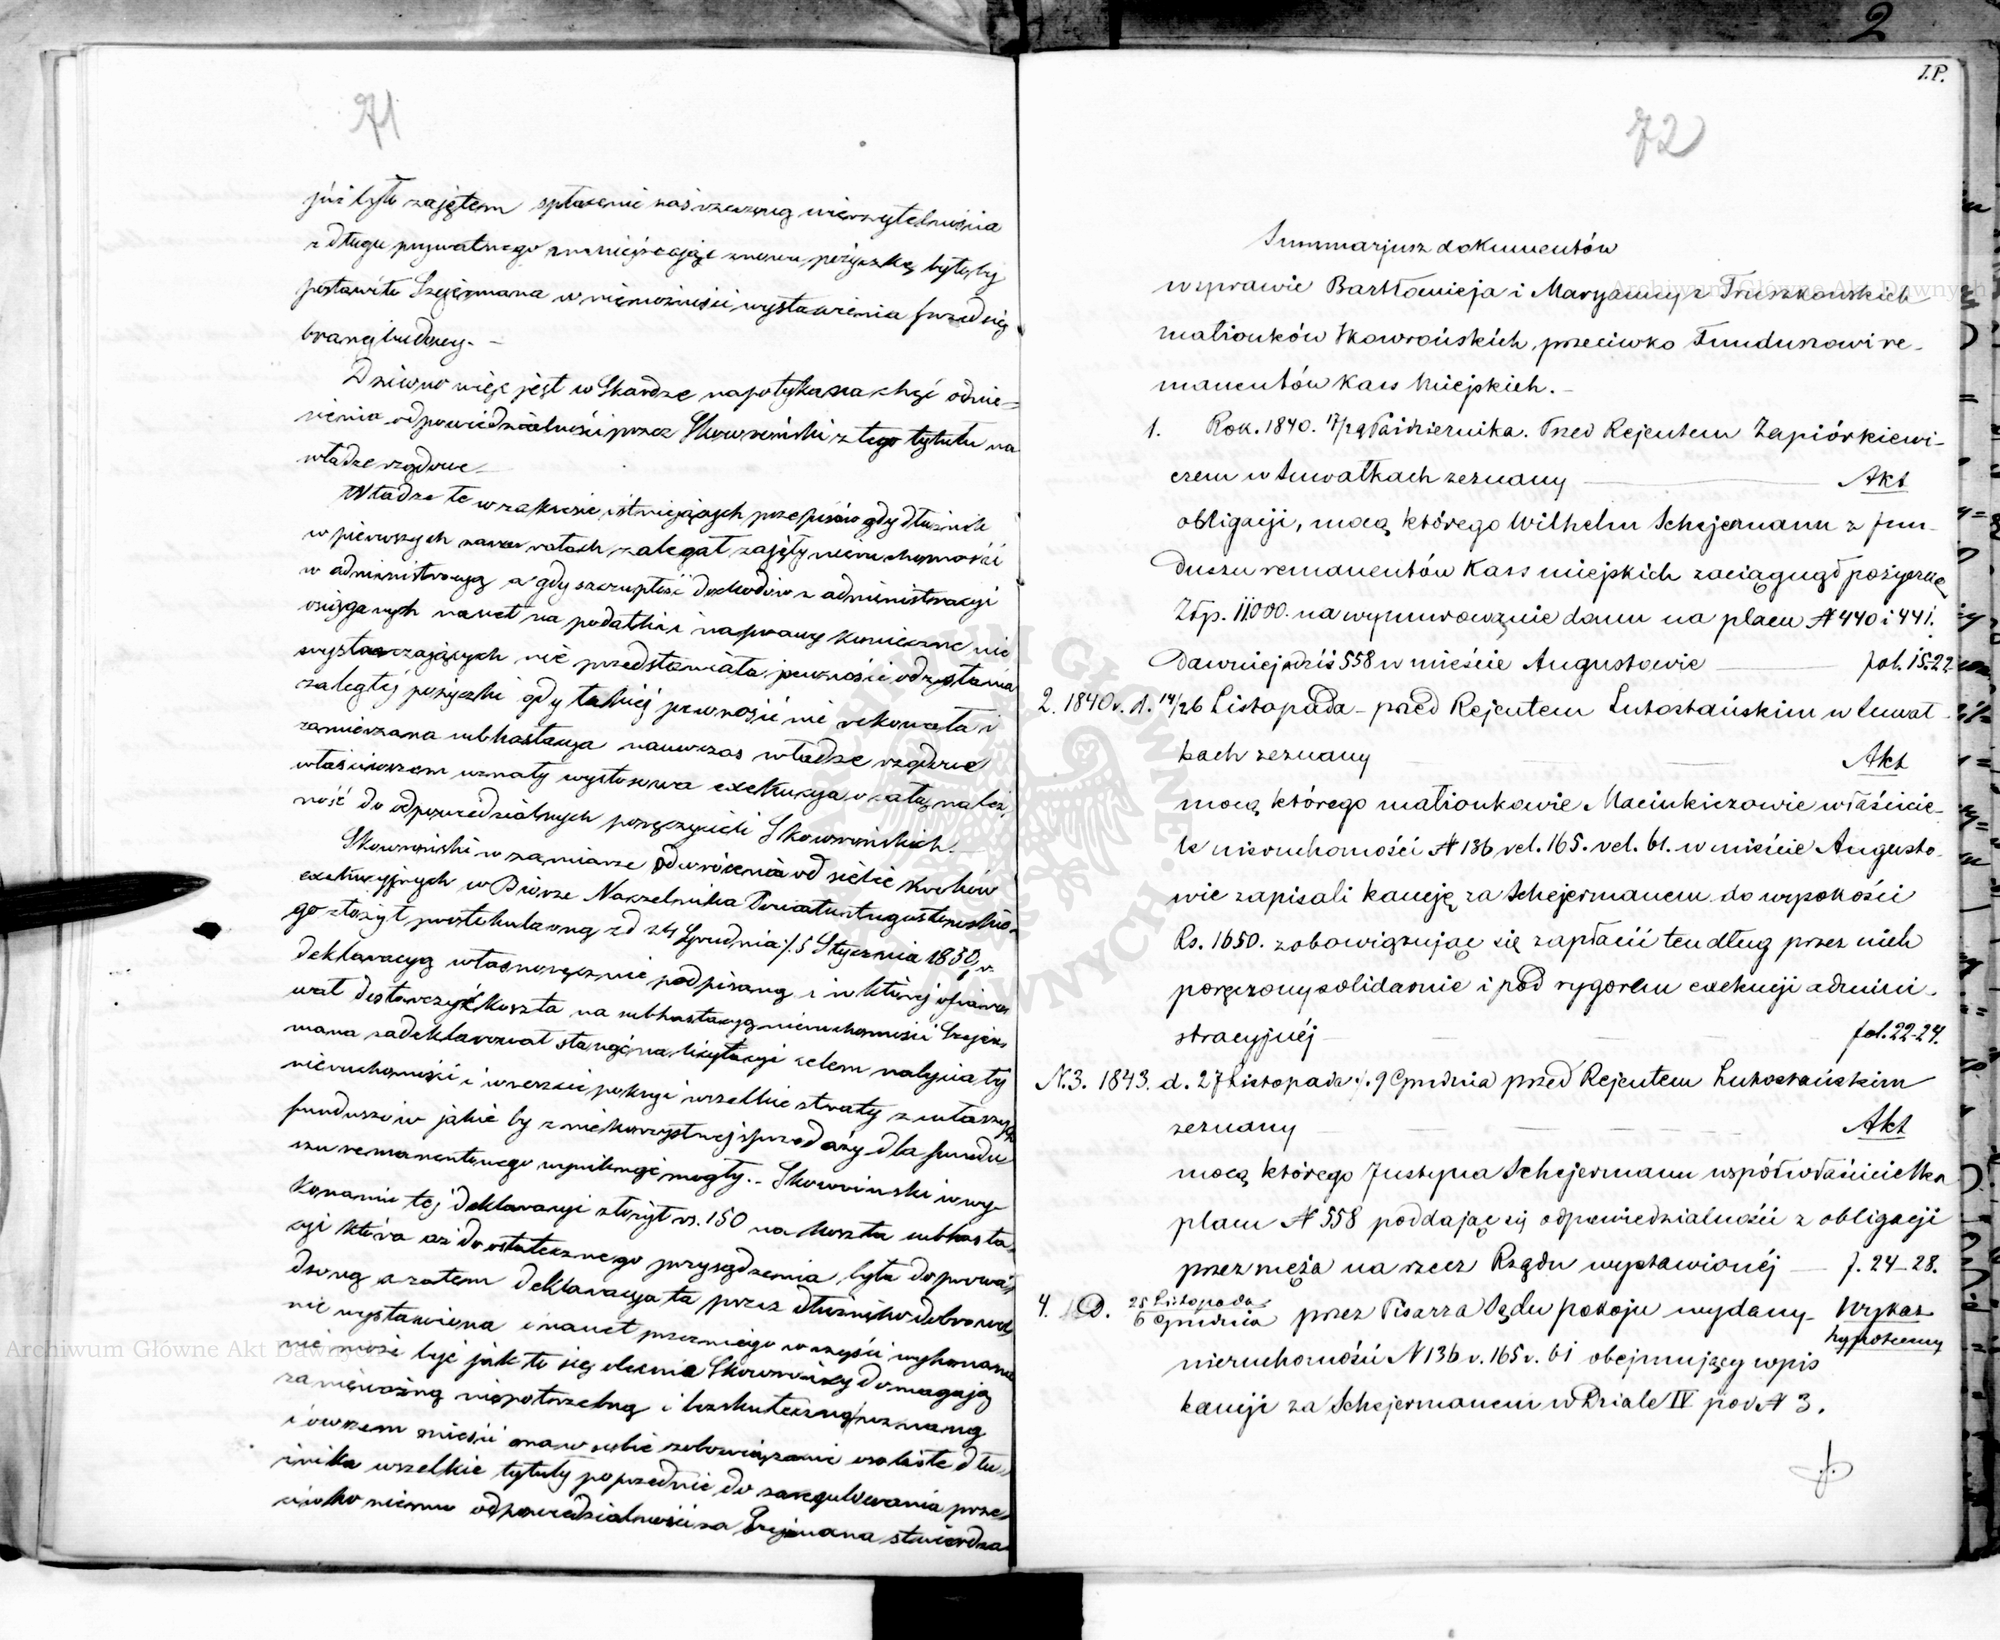 71
już było zajętem spłacenie zaś rzeczoną wierzytelnością
z długu prywatnego zmniejszając znowu pożyczkę byłoby
postawiło Szejermana w niemożności wystawienia przedsię
branej budowy. –
Dziwno więc jest w Skardze napotykana chęć odnie=
sienia odpowiedzialności przez Skowroński z tego tytułu na
władze rządowe –
Władze te w zakresie istniejących przepisów gdy dłużnik
w pierwszych zaraz ratach zalegał zajęły nieruchomości
w administracyą a gdy szczupłość dochodów z administracyi
osiąganych nawet na podatki i naprawy konieczne nie
wystarczających nie przedstawiała pewności odzyskania
zaległej pożyczki gdy takiej pewności nie rokowała i
zamierzana subhastacya nawczas władze rządowe
właściwszem uznały wystosowa exekucya o całą należ,
ność do odpowiedzialnych poręczycieli Skowrońskich. –
Skowroński w zamiarze odwrócenia od siebie kroków
exekucyjnych w Biórze Naczelnika Powiatu Augustowskie,
go złożył protokularną zd 24 Grudnia /. 5 Stycznia 1850/1 r.
deklaracyą własnoręcznie podpisaną i w której ofiaro
wał dostarczyć koszta na subhastacyą nieruchomości Szejer,
mana zadeklarował stanąć na licytacyi celem nabycia tej
nieruchomości i wreszcie pokryć wszelkie straty z własnych
funduszów jakie by z niekorzystnej sprzedaży dla fundu
szu remanentowego wyniknąć mogły. – Skowroński w wy-
konaniu tej deklaracyi złożył rs. 150 na koszta subhasta,
cyi która aż do ostatecznego przysądzenia, była doprowa,
dzoną a zatem deklaracya ta przez dłużnika dobrowol
nie wystawiona i nawet przez niego w części wykonana
nie może być jak to się zdenie Skowrońscy domagają
za nieważną niepotrzebną i bezskuteczną uznaną
i owszem mieści ona w sobie zobowiązanie osobiste dłu,
żnika wszelkie tytuły poprzednie do zaregulowania prze,
ciwko niemu odpowiedzialności za Szejmana stwierdza
2
I.P.
72
Summarjusz dokumentów
w sprawie Bartłomieja i Maryanny z Truszkowskich
małżonków Skowrońskich, przeciwko Funduszowi re-
manentów Kass Miejskich. –
1. Rok. 1840. 17/29 Października. Przed Rejentem Zapiórkiewi-
czem w Suwałkach zeznany — Akt
obligacji, mocą którego Wilhelm Schejermann z fun-
duszu remanentów Kass miejskich zaciągnął pożyczkę
Złp. 11000. na wymurowanie domu na placu N 440 i 441.
Dawniej a dziś 558 w mieście Augustowie — fol. 15-22
2. 1840 r. d. 14/26 Listopada – przed Rejentem Lutostańskim w Suwał-
kach zeznany — Akt
mocą którego małżonkowie Macinkiezowie właścicie-
le nieruchomości N 136 vel. 165. vel. 61. w mieście Augusto-
wie zapisali kaucję za Schejermanem do wysokości
Rs. 1650. zobowiązując się zapłacić ten dług przez nich
poręczony solidarnie i pod rygorem exekucji admini-
stracyjnéj — fol. 22-24.
N. 3. 1843. d. 27 Listopada /. 9 Grudnia przed Rejentem Lutostańskim
zeznany — Akt
mocą którego Justyna Schejermann współwłaścicielka
placu N 558 poddając się odpowiedzialności z obligacji
przez męża na rzecz Rządu wystawionéj — f. 24–28.
4. D. 25 Listopada / 6 Grudnia przez Pisarza Sądu pokoju wydany – Wykaz
hypoteczny
nieruchomości N 136 v. 165 v. 61 obejmujący wpis
kaucji za Schejermanem w Dziale IV pod N 3.
Archiwum Główne Akt Dawnych
Archiwum Główne Akt Dawnych
ARCHIWUM GŁÓWNE AKT DAWNYCH